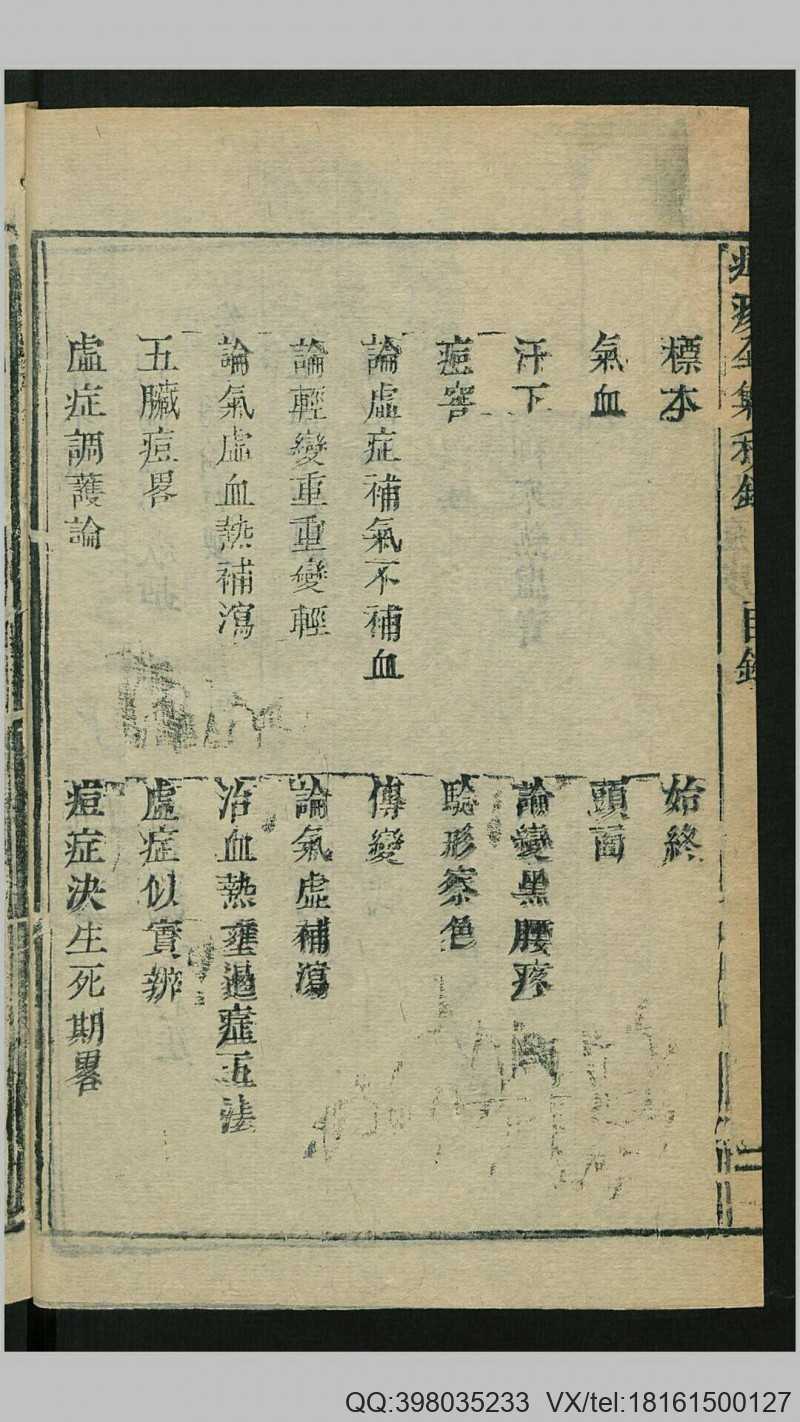 標本
始終
氣血
頭面
汗下
論變黑腰疼
痘害
聽形察色
論虛症補氣不補血
傳變
論輕變重重變輕
論氣虛補瀉
論氣虛血熱補瀉
治血熱壅遏症五法
五臟痘畧
虛症似實辨
虛症調護論
痘症決生死期畧
QQ:398035233 VX/tel:18161500127